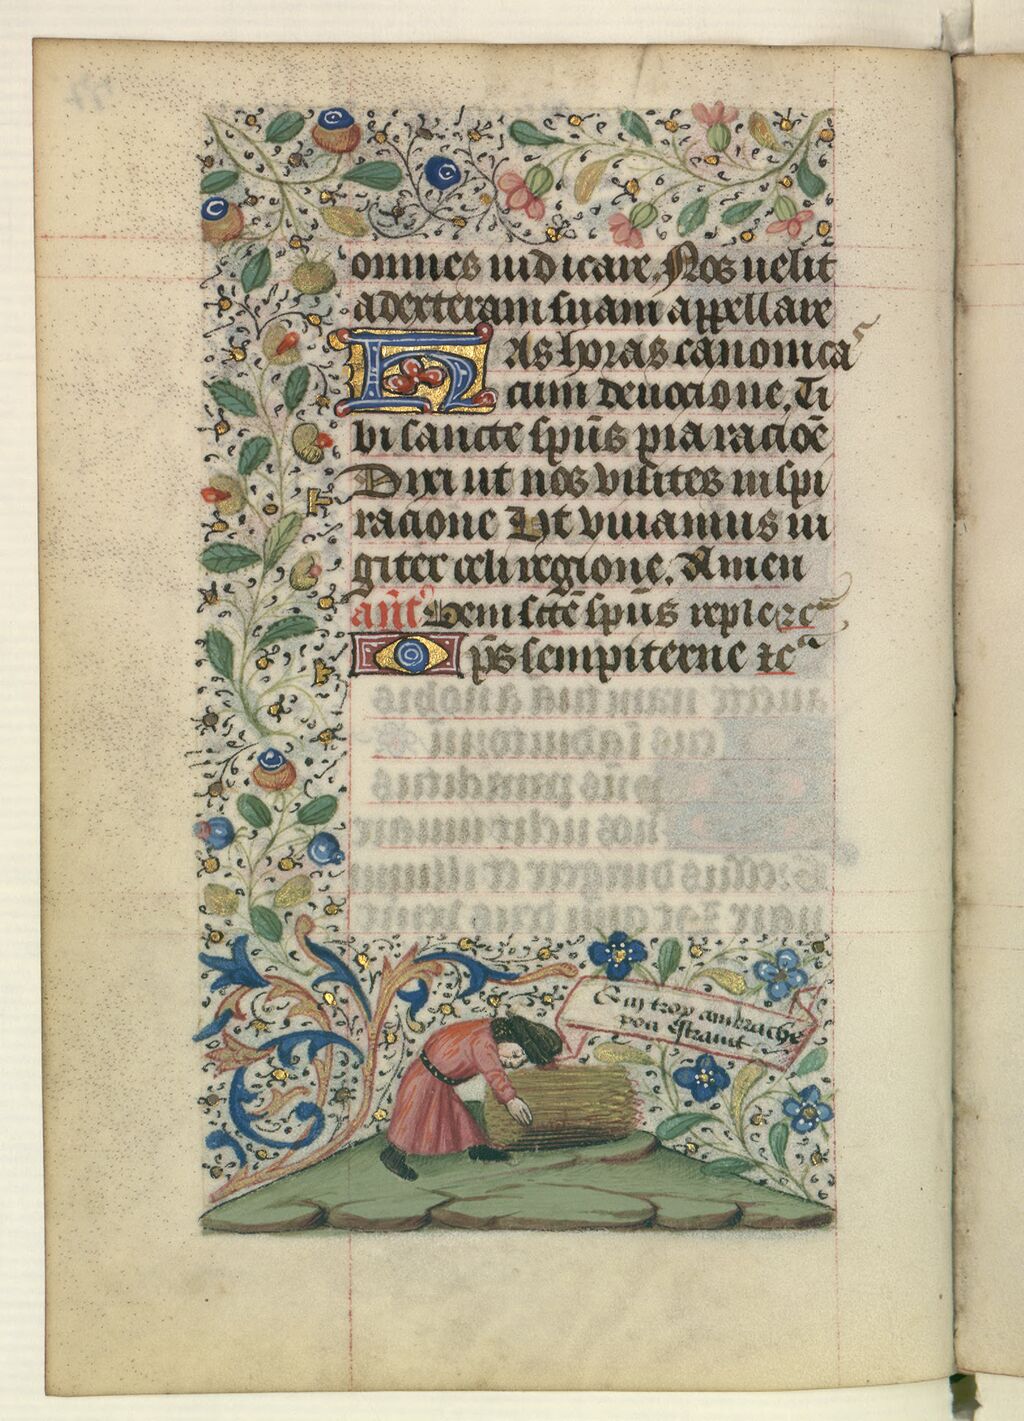 omnes iudicare. Nos uelit
ad exteram suam appellare
Has horas canonicas
cum deuocione, Ti
bi sancte spūs pia racioē
Dixi ut nos visites inspi
racione Ut viuamus iu
giter celi regione. Amen
añt Veni sctē spūs reple ⁊c
Ops sempiterne ⁊c
Qui trop ambrache
pou estraint